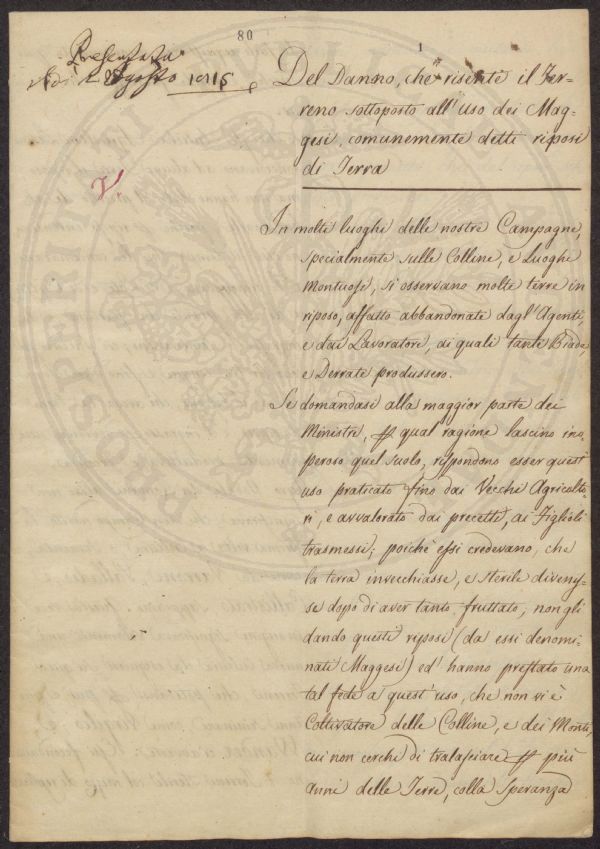 80
1
Presentata
Adì 2 Agosto 1815
V.
Del Danno, che risente il Ter=
reno sottoposto all'uso dei Mag=
gesi, comunemente detti riposi
di Terra
In molte luoghi delle nostre Campagne,
specialmente sulle Colline, e Luoghi
Montuosi, si osservano molte terre in
riposo, affatto abbandonate dagl'Agenti,
e dai Lavoratore, di quali tante Biade,
e Derrate produssero.
Se domandasi alla maggior parte dei
Ministri, qual ragione lascino ino,
peroso quel suolo, rispondono esser quest
uso praticato fino dai Vecchi Agricolto
ri, e avvalorato dai precetti, ai Figlioli
trasmessi; poichè essi credevano, che
la terra invecchiasse, e sterile divenis=
se dopo di aver tanto fruttato, non gli
dando questi riposi (da essi denomi=
nati Maggesi) ed' hanno prestato una
tal fede a quest'uso, che non vi è
Coltivatore delle Colline, e dei Monti,
cui non cerchi di tralasciare più
anni delle Terre, colla Speranza